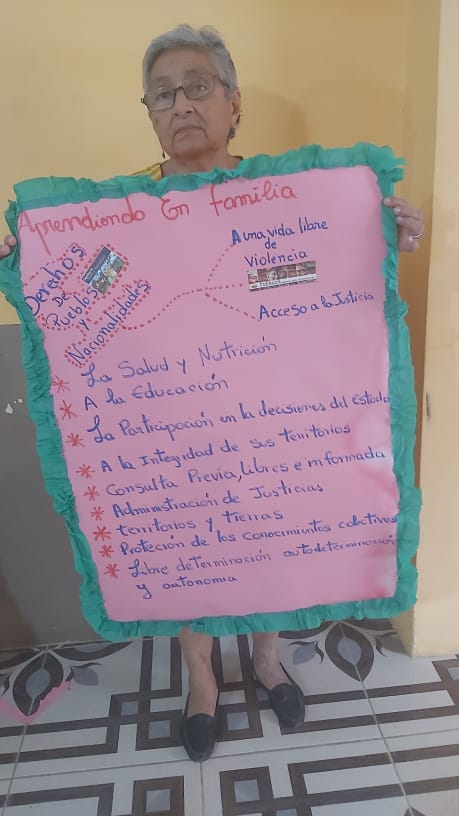 Aprendiendo En familia
Derechos
De
Pueblos
y
Nacionalidades
A una vida libre
de
Violencia
Acceso a la Justicia
* La Salud y Nutrición
* A la Educación
* La Participoción en la decisiones del Estado
* A la Integridad de sus territorios
* Consulta Previa, libres e informada
* Administración de Justicias
* territorios y tierras
* Proteción de los conocimientos colectivos
* Libre determinoción autodeterminoción
y autonomia